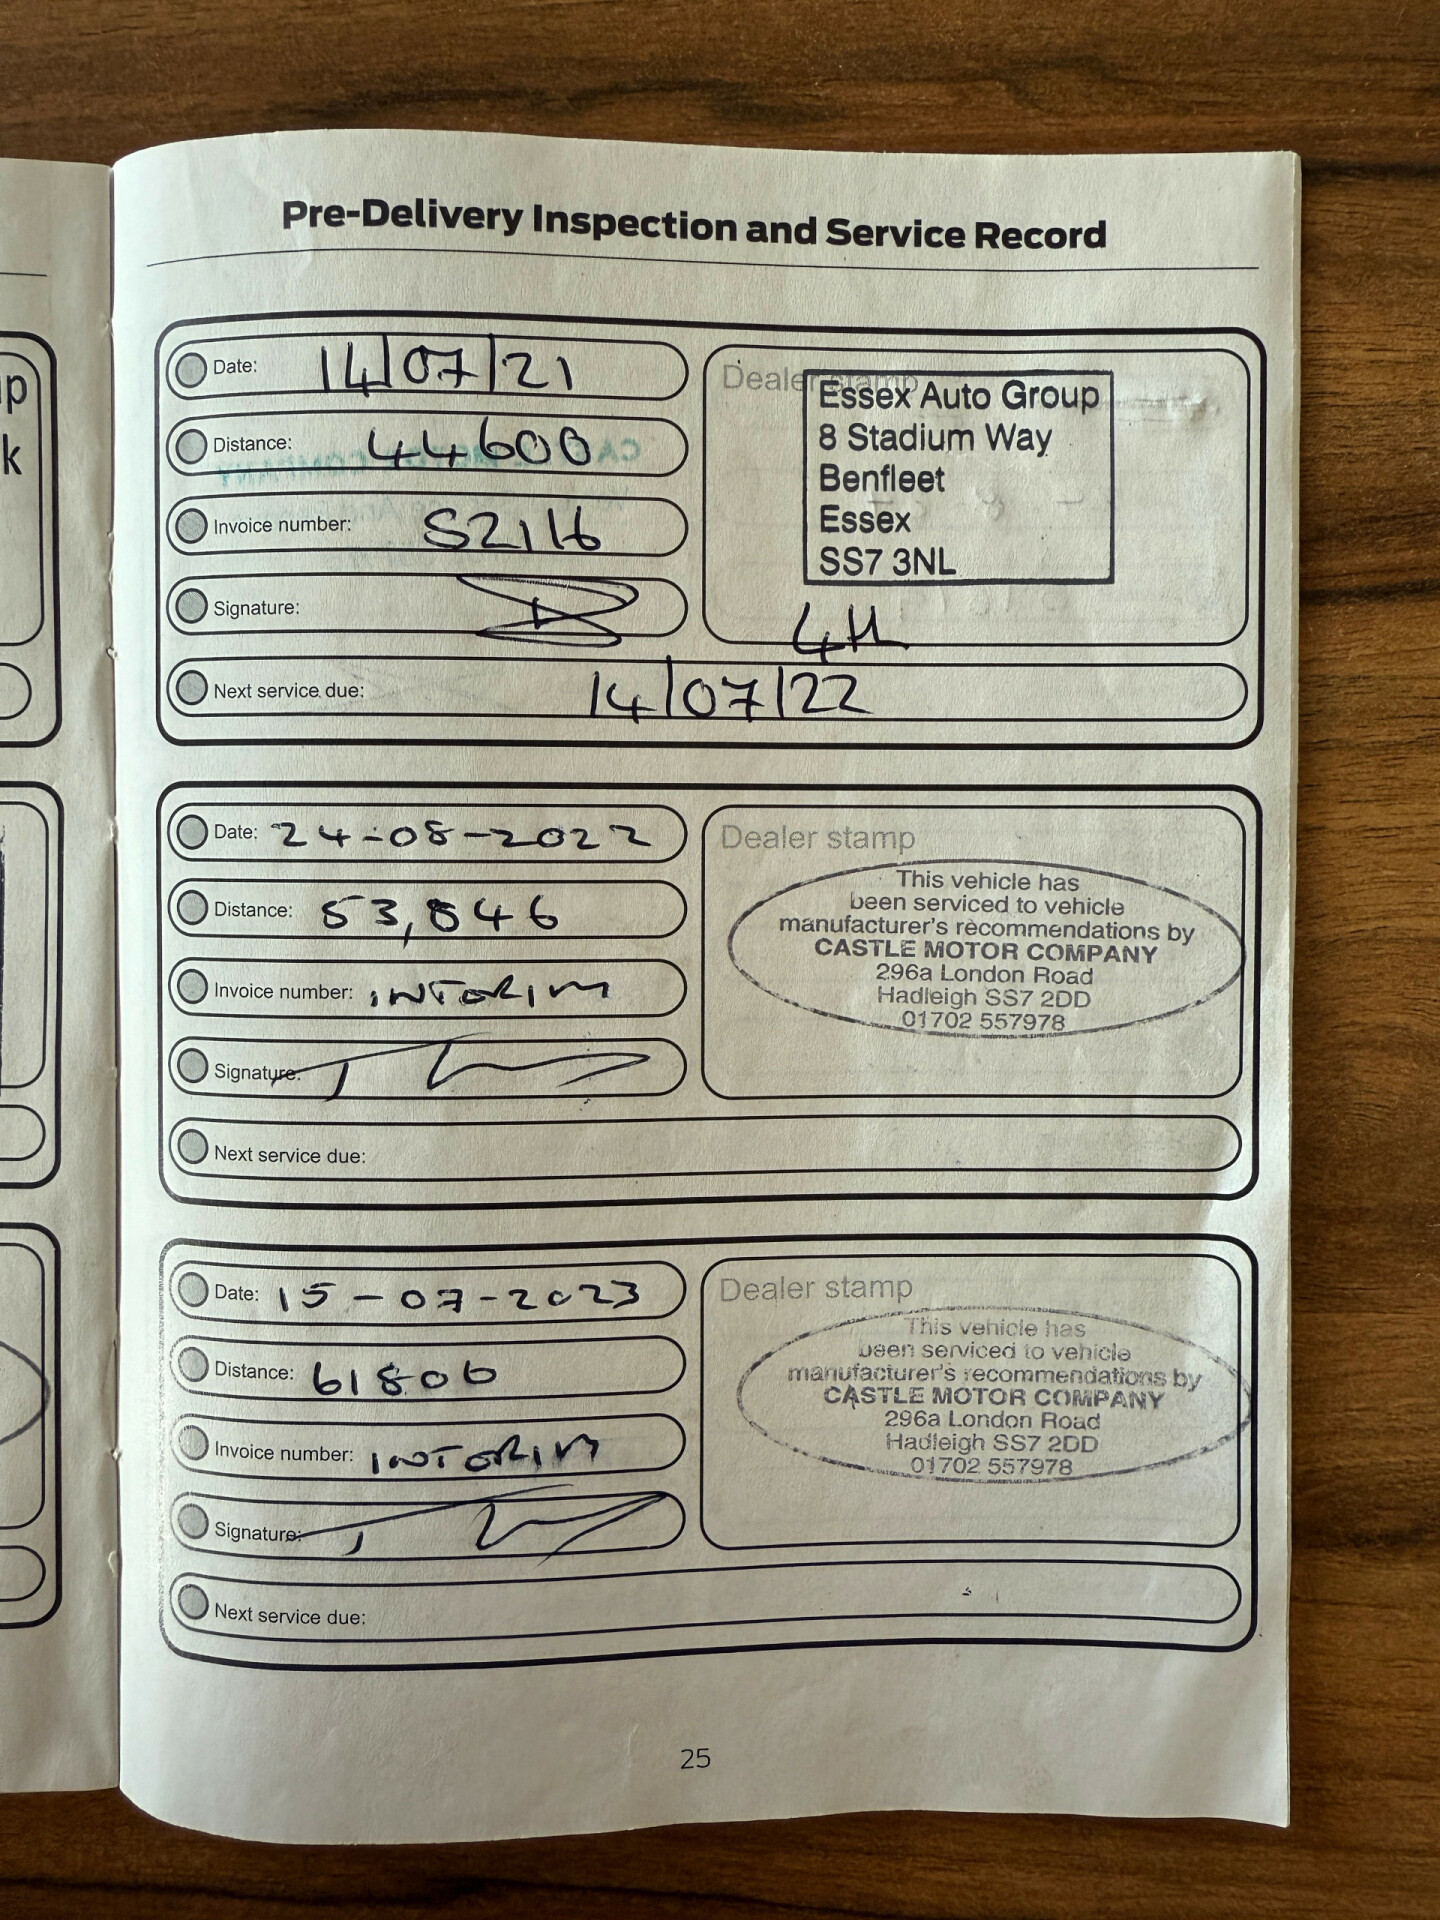 Pre-Delivery Inspection and Service Record
Date: 14/07/21
Distance: 44600
Invoice number: S2116
Signature:
Dealer stamp
Essex Auto Group
8 Stadium Way
Benfleet
Essex
SS7 3NL
Next service due: 14/07/22
Date: 24-08-2022
Distance: 53,846
Invoice number: INTORIM
Signature:
Dealer stamp
This vehicle has
been serviced to vehicle
manufacturer's recommendations by
CASTLE MOTOR COMPANY
296a London Road
Hadleigh SS7 2DD
01702 557978
Next service due:
Date: 15-07-2023
Distance: 61806
Invoice number: INTORIM
Signature:
Dealer stamp
This vehicle has
been serviced to vehicle
manufacturer's recommendations by
CASTLE MOTOR COMPANY
296a London Road
Hadleigh SS7 2DD
01702 557978
Next service due:
25